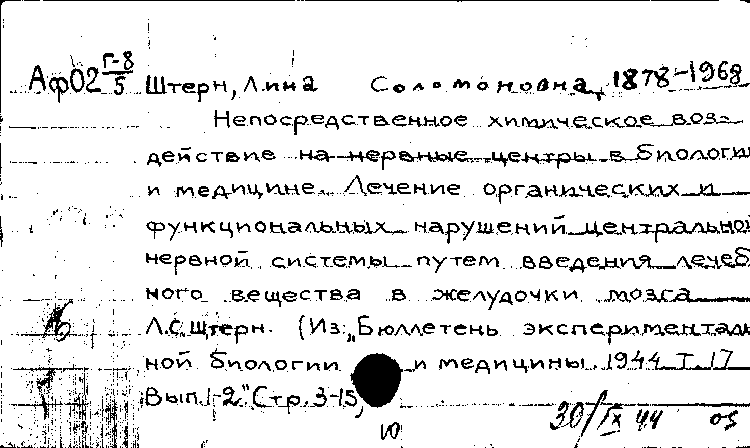 Аф02 Г-8/5 Штерн, Лина Соломоновна, 1878-1968
Непосредственное химическое воз-
действие на нервные центры в биологии
и медицине. Лечение органических и
функциональных нарушений центральной
нервной системы путем введения лечеб
ного вещества в желудочки мозга
Л.С.Штерн. (Из: „Бюллетень эксперименталь
ной биологии и медицины. 1944 Т. 17
Вып. 1-2" Стр. 3-15,
30/IX 44
10